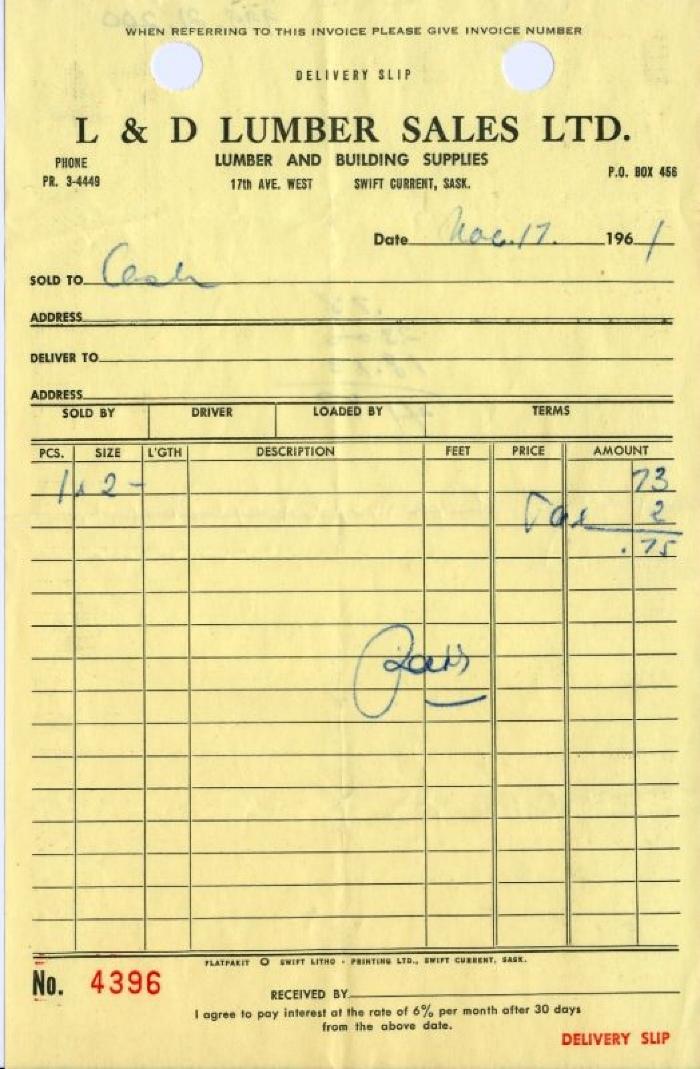 WHEN REFERRING TO THIS INVOICE PLEASE GIVE INVOICE NUMBER
DELIVERY SLIP
L & D LUMBER SALES LTD.
PHONE
PR. 3-4449
LUMBER AND BUILDING SUPPLIES
17th AVE. WEST SWIFT CURRENT, SASK.
P.O. BOX 456
Date Nov. 17. 1961
SOLD TO Cash
ADDRESS
DELIVER TO
ADDRESS
SOLD BY DRIVER LOADED BY TERMS
PCS. SIZE L'GTH DESCRIPTION FEET PRICE AMOUNT
1 x 2 - 73
Tax 2
.75
No. 4396
FLATPAKIT SWIFT LITHO - PRINTING LTD., SWIFT CURRENT, SASK.
RECEIVED BY
I agree to pay interest at the rate of 6% per month after 30 days
from the above date.
DELIVERY SLIP